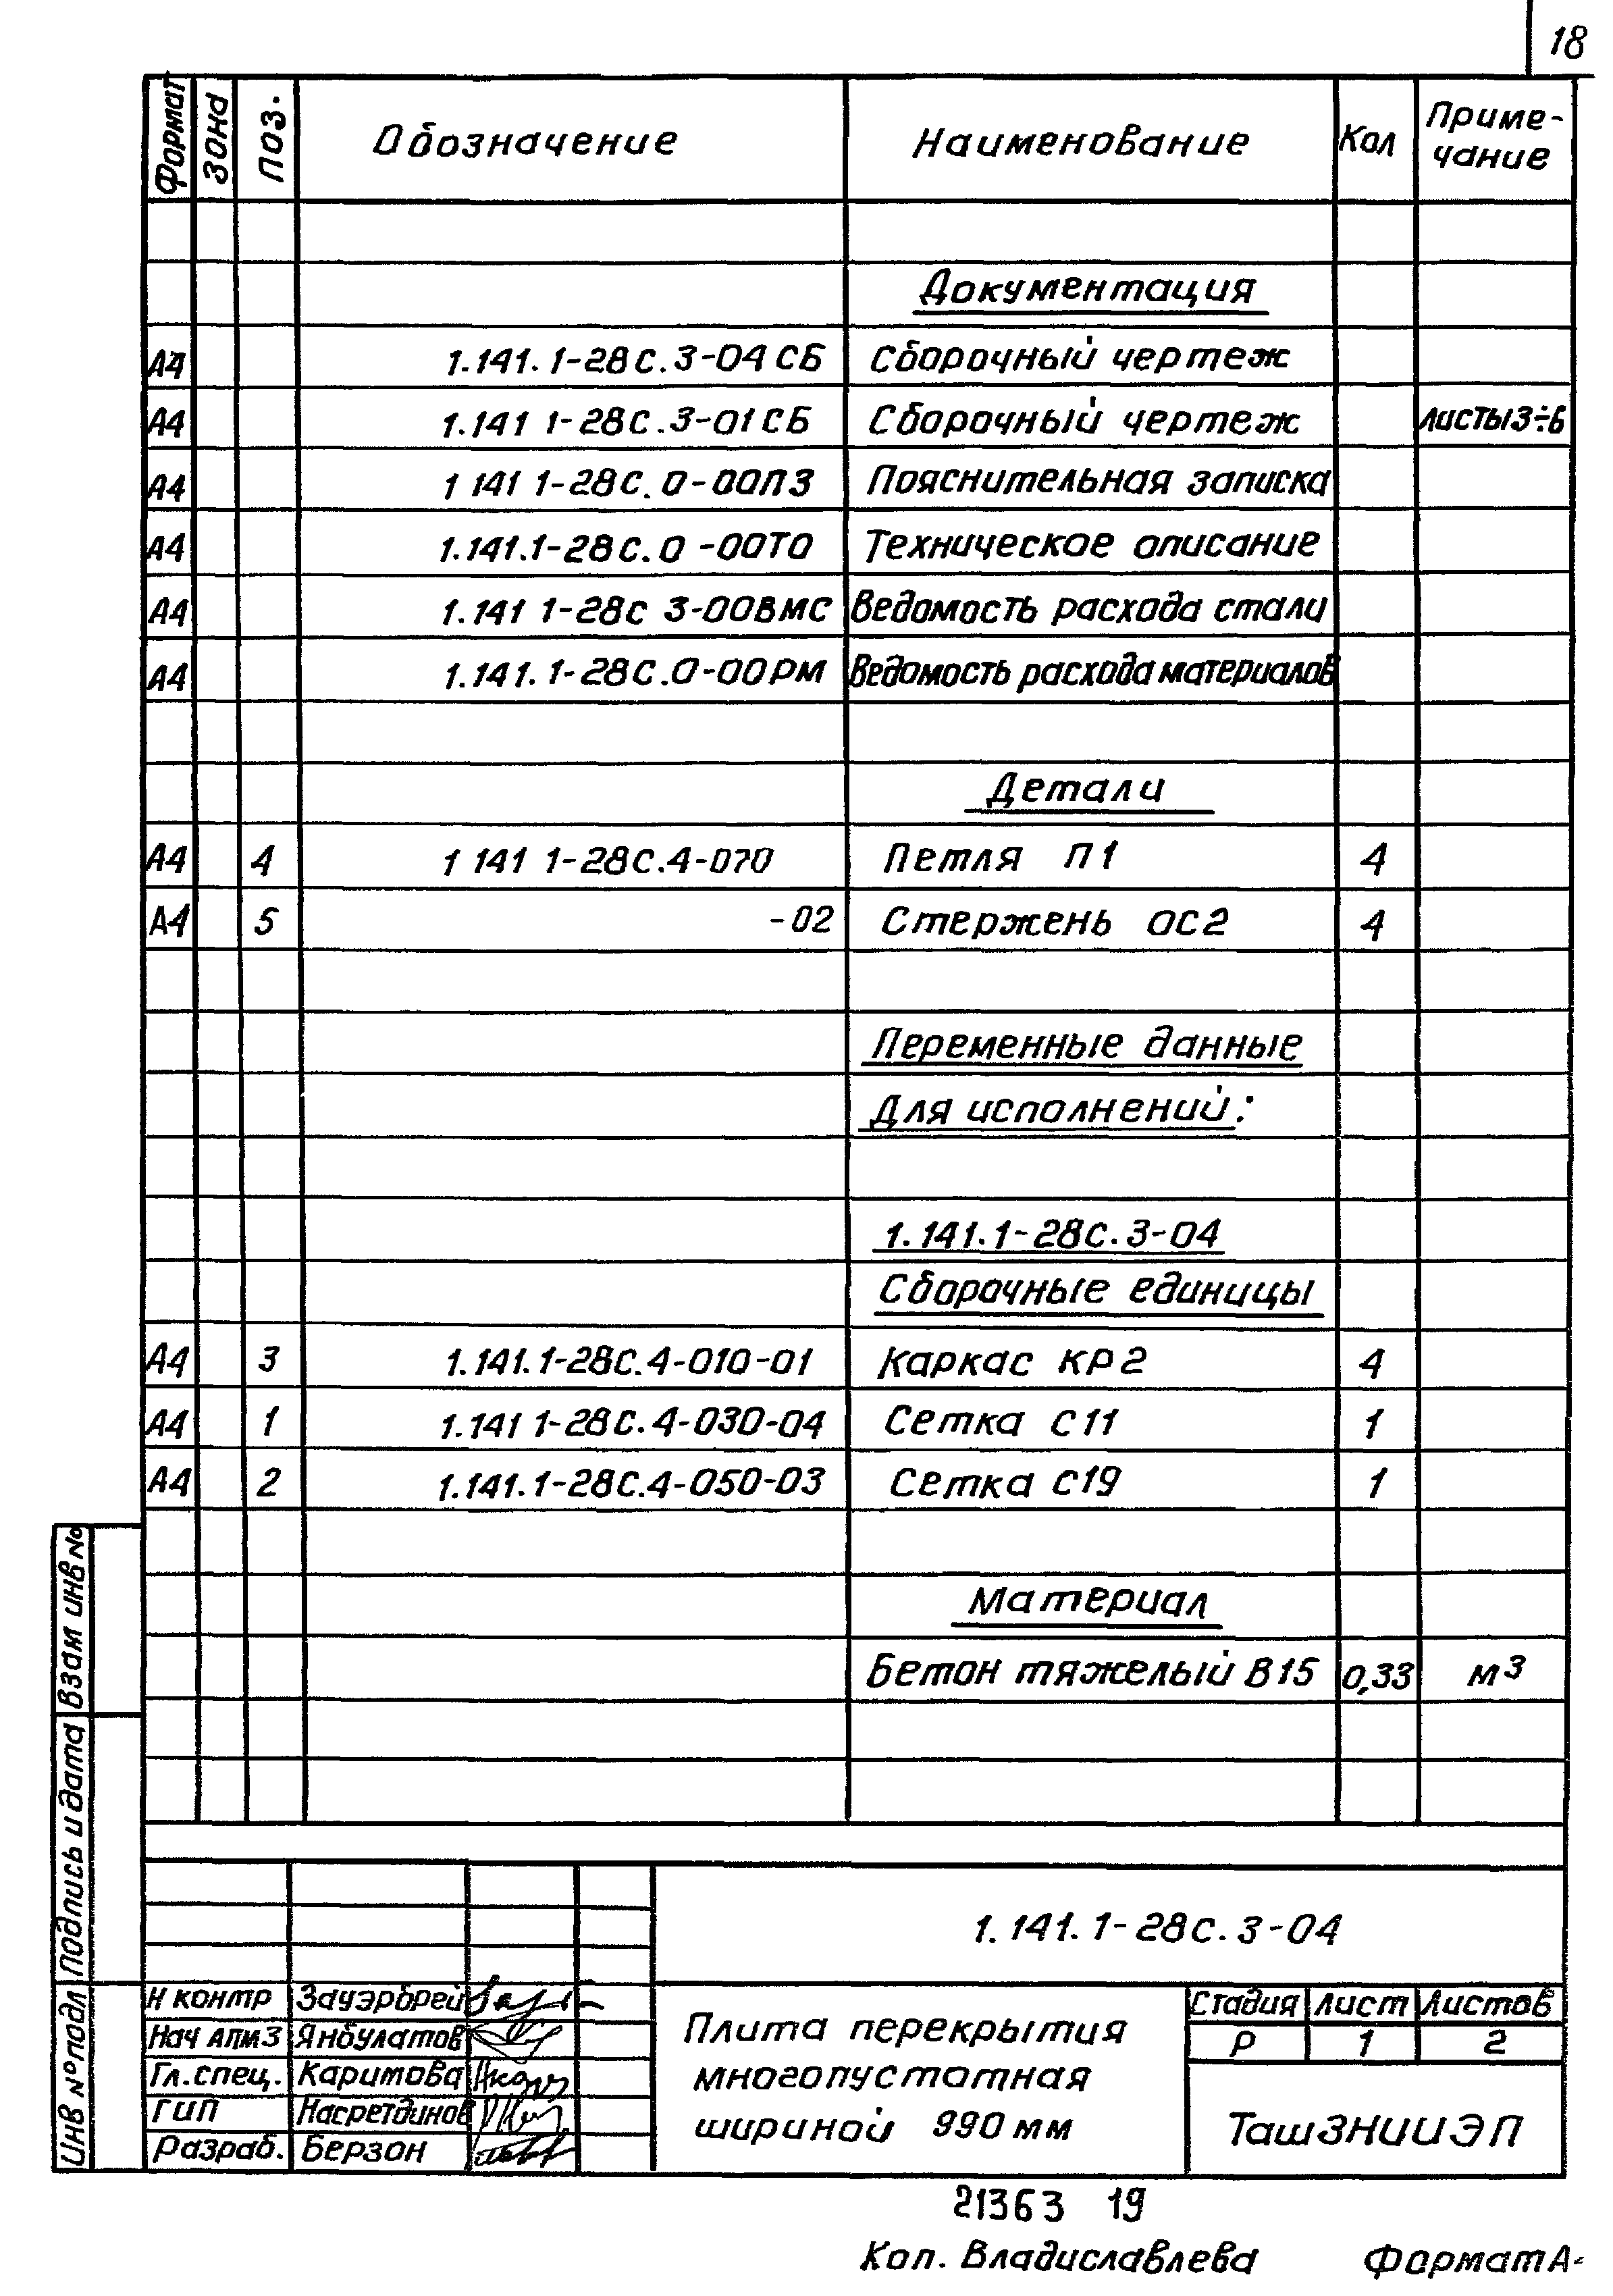 18
Формат Зона Поз. Обозначение Наименование Кол Приме-
чание
Документация
А4 1.141.1-28С.3-04СБ Сборочный чертеж
А4 1.141 1-28С.3-01СБ Сборочный чертеж листы3÷6
А4 1 141 1-28С.0-00ПЗ Пояснительная записка
А4 1.141.1-28С.0-00ТО Техническое описание
А4 1.141 1-28с 3-00ВМС Ведомость расхода стали
А4 1.141.1-28С.0-00РМ Ведомость расхода материалов
Детали
А4 4 1 141 1-28С.4-070 Петля П1 4
А4 5 -02 Стержень ОС2 4
Переменные данные
Для исполнений:
1.141.1-28С.3-04
Сборочные единицы
А4 3 1.141.1-28С.4-010-01 Каркас КР2 4
А4 1 1.141 1-28С.4-030-04 Сетка С11 1
А4 2 1.141.1-28С.4-050-03 Сетка С19 1
Материал
Бетон тяжелый В15 0,33 м3
Взам инв №
Подпись и дата
Инв № подл
1.141.1-28с.3-04
Н контр Зауэрбрей
Нач АПМ3 Янбулатов
Гл.спец. Каримова
ГИП Насретдинов
Разраб. Берзон
Плита перекрытия
многопустотная
шириной 990 мм
Стадия Лист Листов
Р 1 2
ТашЗНИИЭП
21363 19
Коп. Владиславлева Формат А-